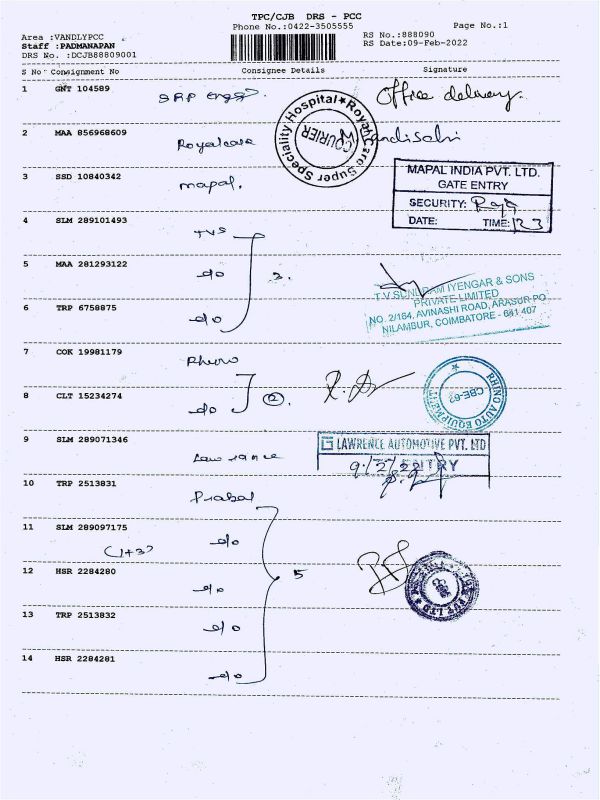 TPC/CJB DRS - PCC
Phone No.:0422-3505555
Page No.:1
Area :VANDLYPCC
Staff :PADMANAPAN
DRS No. :DCJB88809001
RS No.:888090
RS Date:09-Feb-2022
S No Consignment No Consignee Details Signature
1 GNT 104589 SRP Engg. Office delivery.
Royal Care Super Speciality Hospital
COURIER
2 MAA 856968609 Royalcare
3 SSD 10840342 mapal.
MAPAL INDIA PVT. LTD.
GATE ENTRY
SECURITY:
DATE: TIME:
4 SLM 289101493 TVS
5 MAA 281293122 d/o 3.
6 TRP 6758875 d/o
T.V SUNDRAM IYENGAR & SONS
PRIVATE LIMITED
NO. 2/184, AVINASHI ROAD, ARASUR PO
NILAMBUR, COIMBATORE - 641 407
7 COK 19981179 Rhino
8 CLT 15234274 d/o 2.
RHINO AUTO EQUIPMENT
CBE-62
9 SLM 289071346 Lawrance
LAWRENCE AUTOMOTIVE PVT. LTD
9/2/22 ENTRY
10 TRP 2513831 Prabal
11 SLM 289097175 d/o
(1+3)
12 HSR 2284280 d/o 5
PVT LTD
13 TRP 2513832 d/o
14 HSR 2284281 d/o